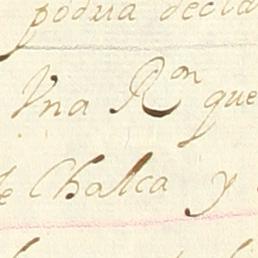 podua decla
Vna Ron que
de Chalca y